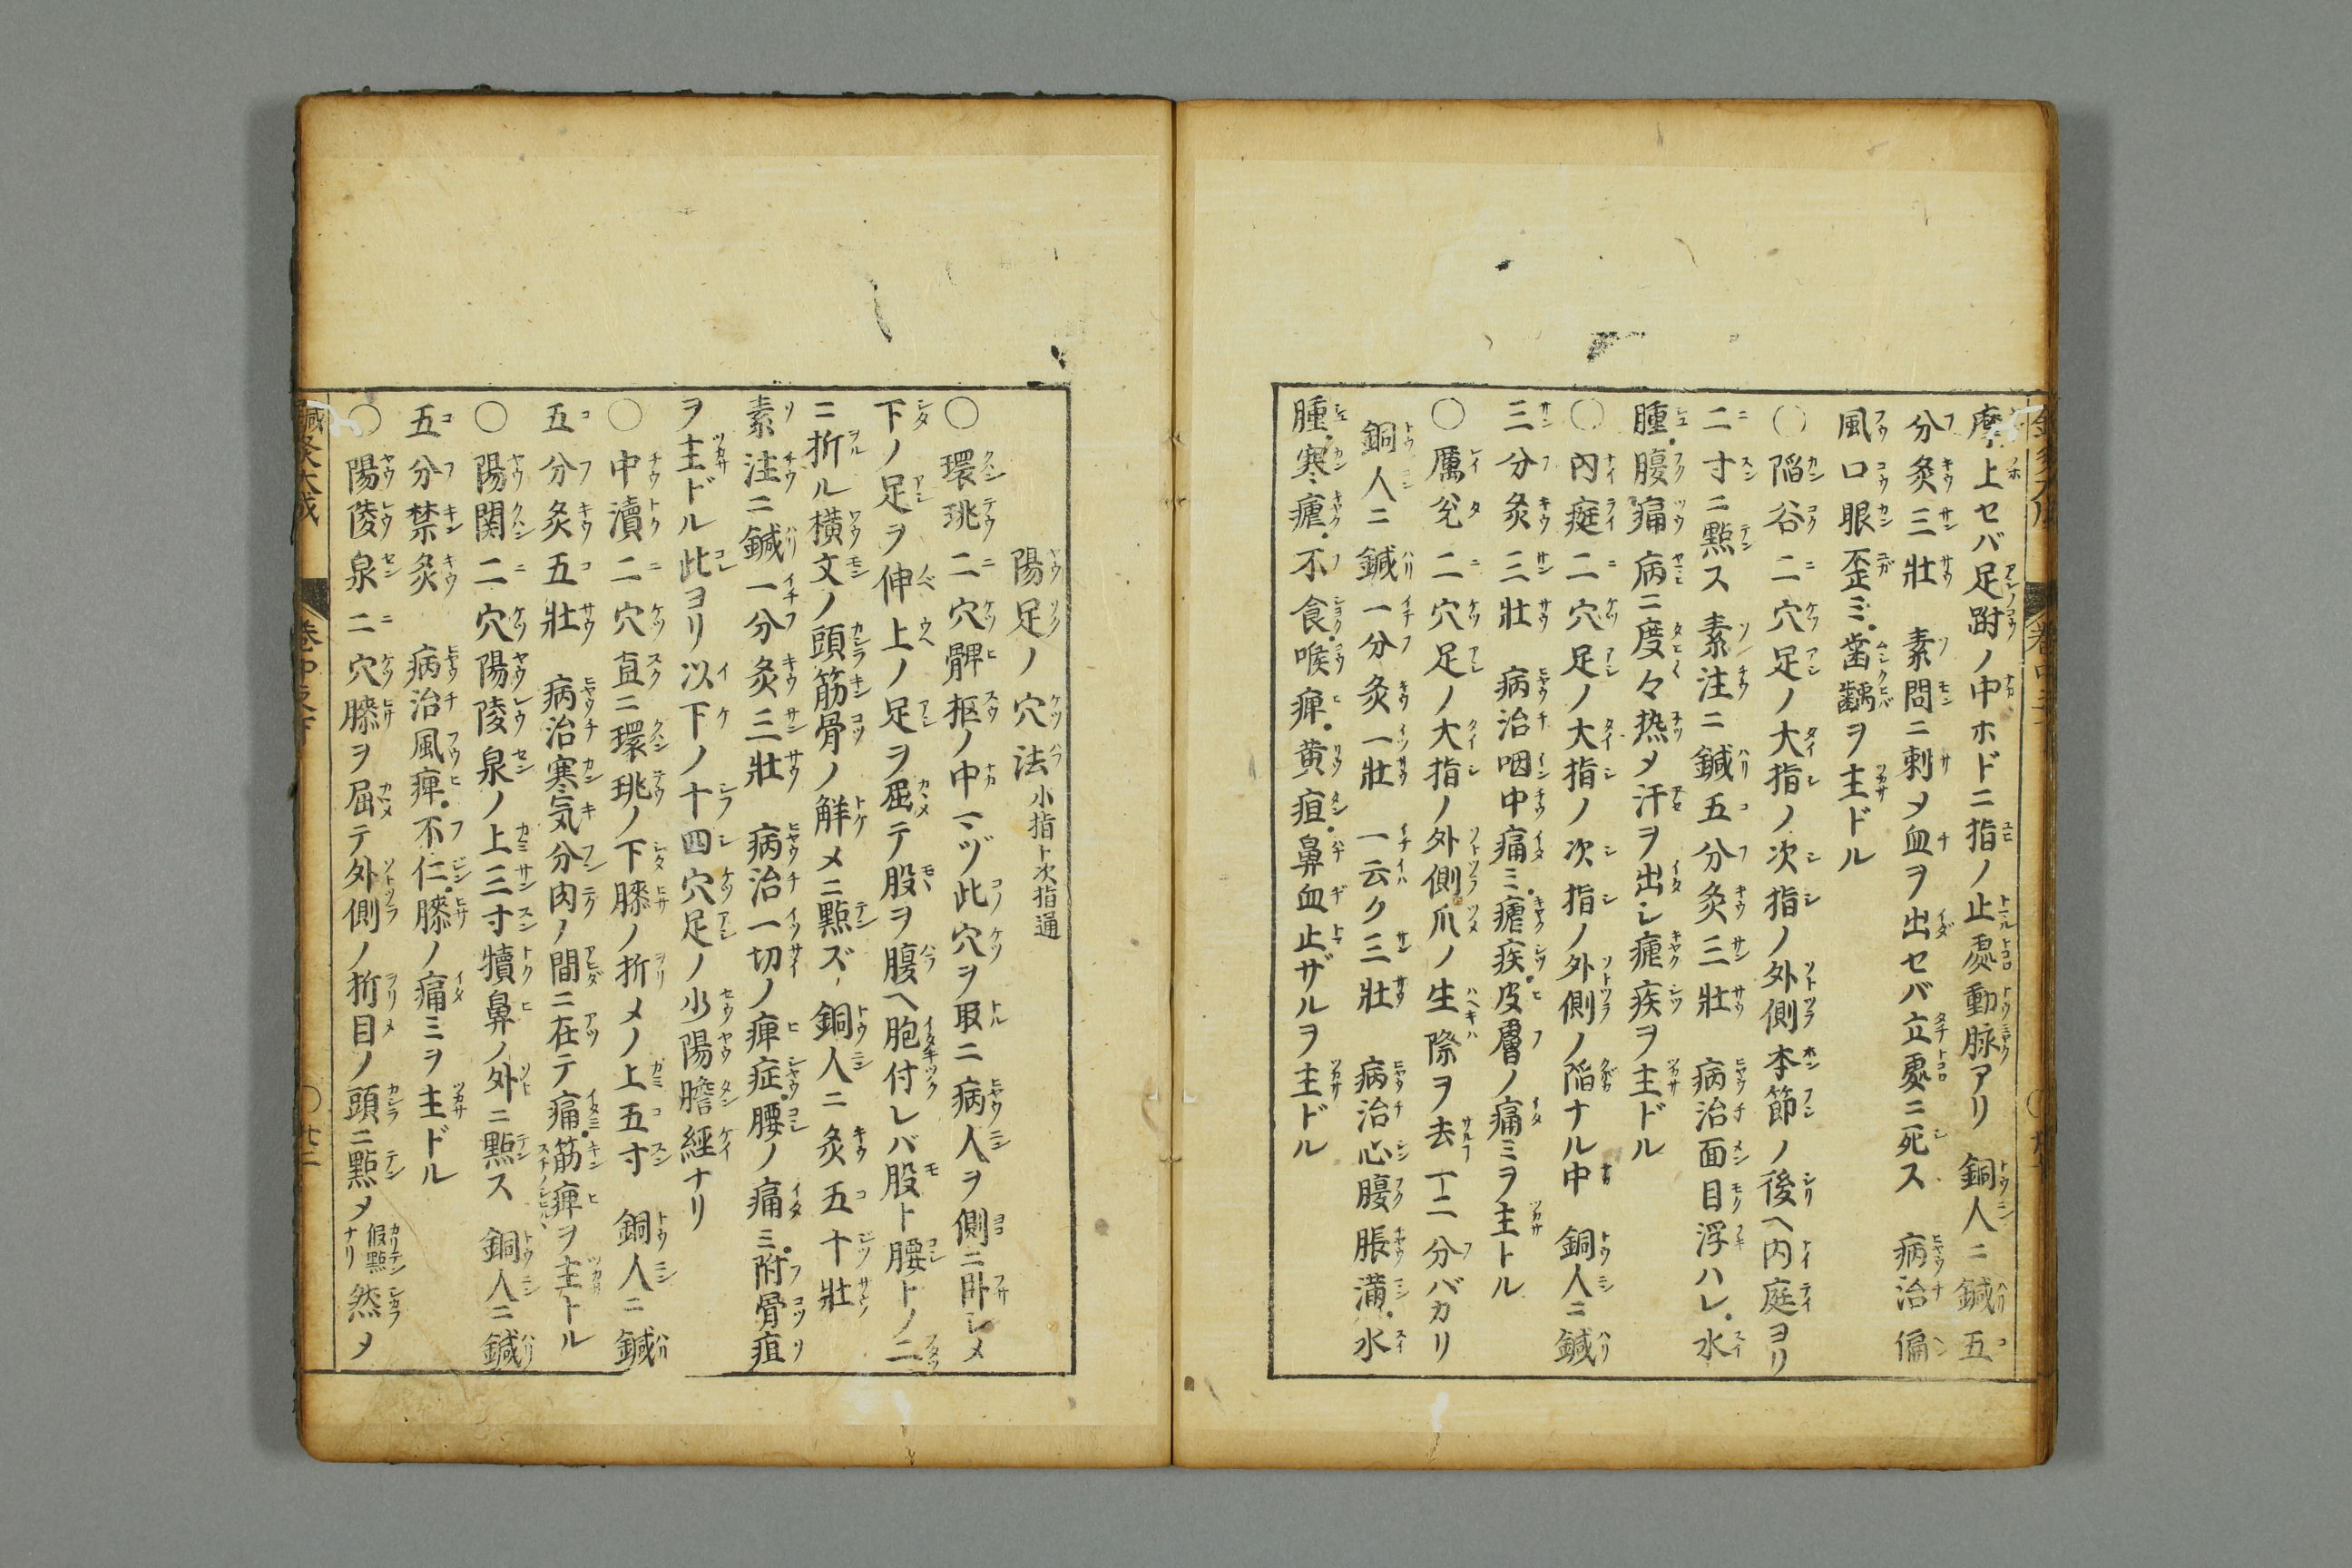 摩上セバ足跗ノ中ホドニ指ノ止處動脉アリ　銅人ニ鍼五
分灸三壯　素問ニ刺メ血ヲ出セバ立處ニ死ス　病治偏
風口眼歪ミ齒齲ヲ主ドル
〇陷谷二穴足ノ大指ノ次指ノ外側本節ノ後ヘ内庭ヨリ
二寸ニ點ス　素注ニ鍼五分灸三壯　病治面目浮ハレ水
腫腹痛病ニ度々熱メ汗ヲ出シ瘧疾ヲ主ドル
〇内庭二穴足ノ大指ノ次指ノ外側ノ陷ナル中　銅人ニ鍼
三分灸三壯　病治咽中痛ミ瘧疾皮膚ノ痛ミヲ主トル
〇厲兌二穴足ノ大指ノ外側爪ノ生際ヲ去一二分バカリ
銅人ニ鍼一分灸一壯　一云ク三壯　病治心腹脹滿水
腫寒瘧不食喉痺黄疸鼻血止ザルヲ主ドル
陽足ノ穴法　小指ト次指通
〇環珧二穴髀枢ノ中マヅ此穴ヲ取ニ病人ヲ側ニ卧シメ
下ノ足ヲ伸上ノ足ヲ屈テ股ヲ腹ヘ胞付レバ股ト腰トノ二
ニ折ル横文ノ頭筋骨ノ解メニ點ズ　銅人ニ灸五十壯
素注ニ鍼一分灸三壯　病治一切ノ痺症腰ノ痛ミ附骨疽
ヲ主ドル此ヨリ以下ノ十四穴足ノ少陽膽經ナリ
〇中瀆二穴直ニ環珧ノ下膝ノ折メノ上五寸　銅人ニ鍼
五分灸五壯　病治寒気分肉ノ間ニ在テ痛筋痺ヲ主トル
〇陽関二穴陽陵泉ノ上三寸犢鼻ノ外ニ點ス　銅人ニ鍼
五分禁灸　病治風痺不仁膝ノ痛ミヲ主ドル
〇陽陵泉二穴膝ヲ屈テ外側ノ折目ノ頭ニ點メ　假點ナリ　然メ
鍼灸大成　卷中之下　〇廿二